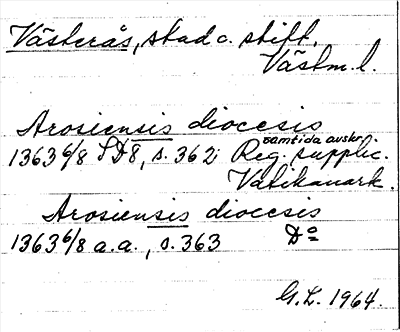 Västerås, stad o. stift.
Västm. l
Arosiensis diocesis
samtida avskr.
1363 6/8 SD8, s. 362; Reg. supplic.
Vatikanark.
Arosiensis diocesis
1363 6/8 a.a., s. 363 Do
G.L. 1964.